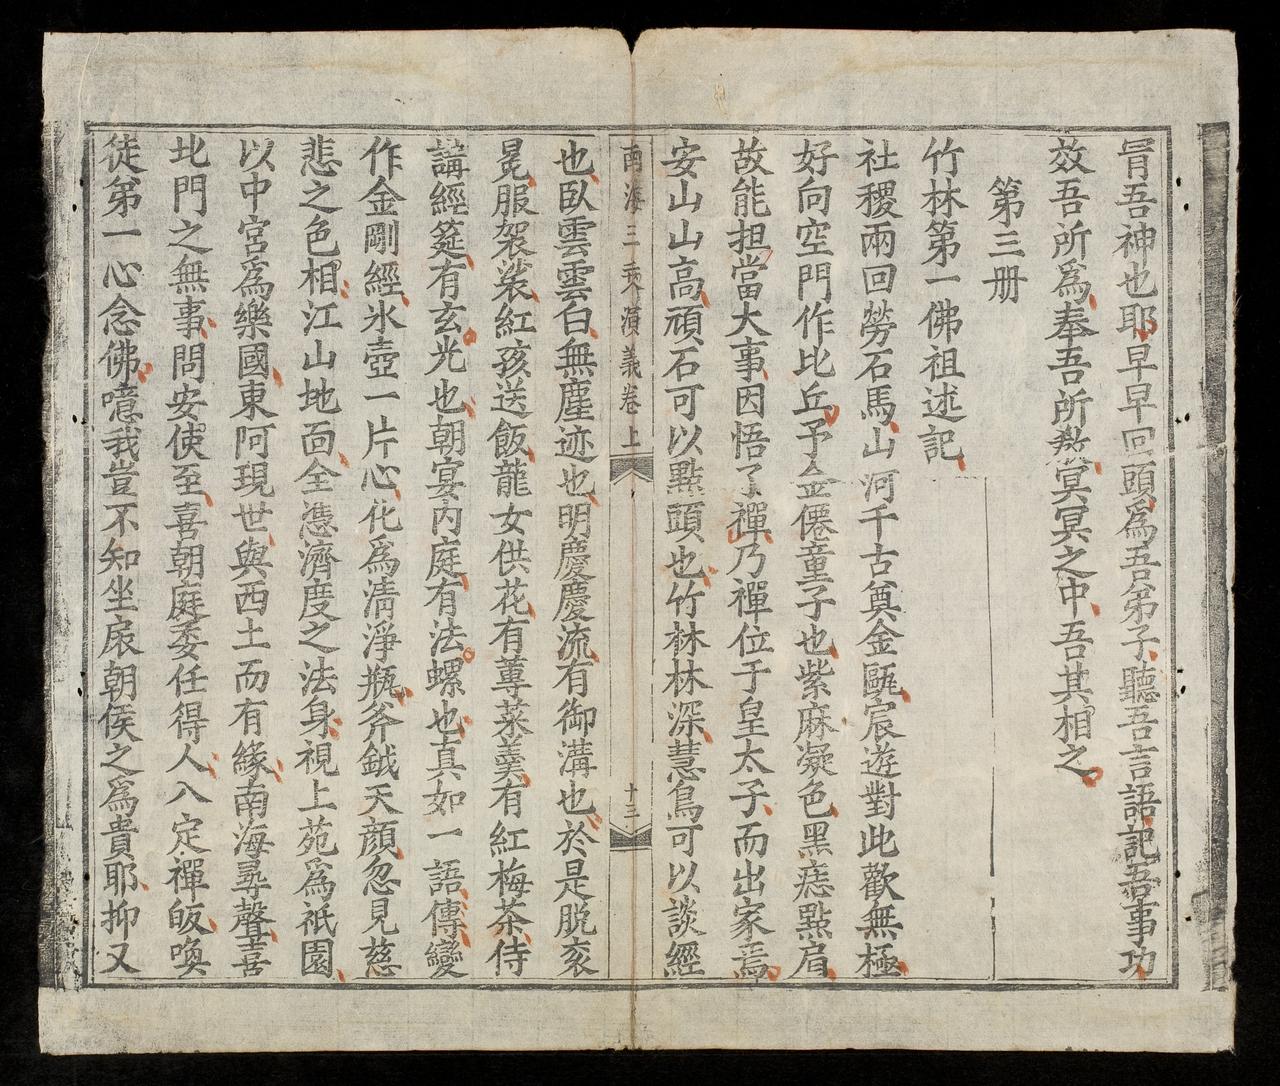 胥吾神也耶早早回頭爲吾弟子聽吾言語記吾事功
效吾所爲奉吾所教冥冥之中吾其相之
第三册
竹林第一佛祖述記
社稷兩回勞石馬山河千古奠金甌宸遊對此歡無極
好向空門作比丘予金僊童子也紫麻凝色黑痣點眉
故能担當大事因悟了禪乃禪位于皇太子而出家焉
安山山高頑石可以點頭也竹林林深慧鳥可以談經
南海三乘演義卷上 十三
也臥雲雲白無塵迹也明慶慶流有御溝也於是脱衮
冕服袈裟紅孩送飯龍女供花有蓴菜羹有紅梅茶侍
講經筵有玄光也朝宴內庭有法螺也真如一語傳變
作金剛經氷壺一片心化爲清淨瓶斧鉞天顔忽見慈
悲之色相江山地面全憑濟度之法身視上苑爲祇園
以中宮爲樂國東阿現世與西土而有緣南海尋聲喜
北門之無事問安使至喜朝庭委任得人入定禪皈喚
徒弟一心念佛噫我豈不知坐扆朝侯之爲貴耶抑又